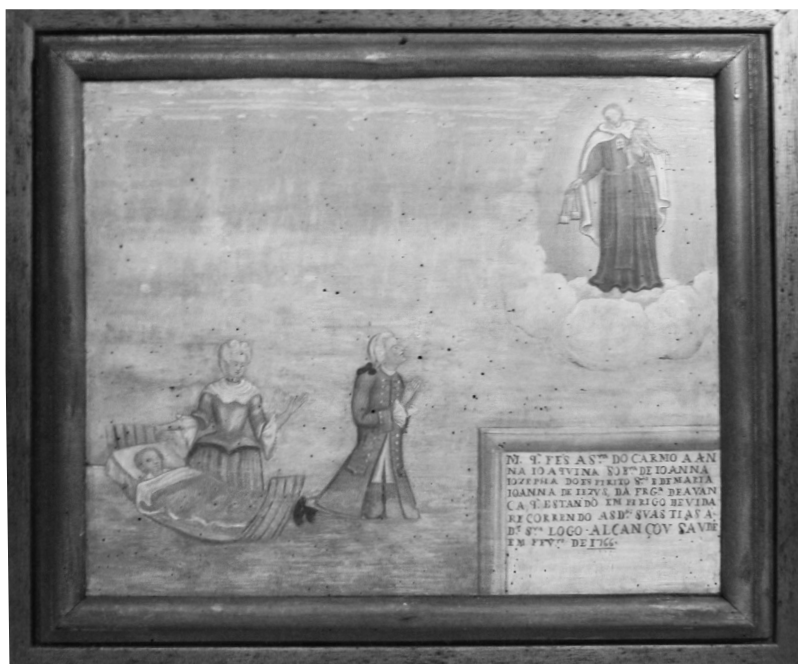 M. Q. FES A S.RA DO CARMO A AN
NA IOAQVINA SOBR.A DE IOANNA
IOZEPHA DO ESPIRITO S.TO E DE MARIA
IOANNA DE IEZVS, DA FRG.A DE AVAN
CA Q. ESTANDO EM PERIGO DE VIDA
RECORRENDO AS D.AS SVAS TIAS A
D.A S.RA LOGO ALCANÇOV SAVDE
EM FEV.RO DE 1766.